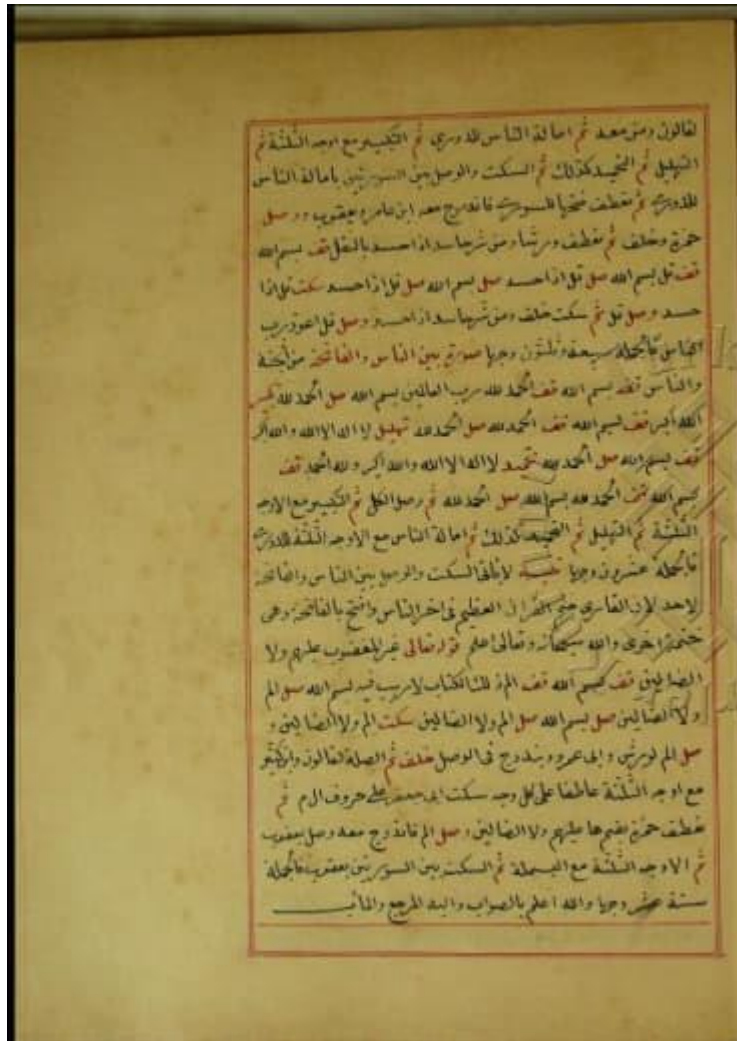 لقالون ومن معه ثم امالة الناس للدوري ثم التكبير مع اوجه الثلثة ثم
التهليل ثم التحميد كذلك ثم السكت والوصل بين السورتين بامالة الناس
للدوري ثم نعطف فتحها للسوسي فاندرج معه ابن عامر ويعقوب ووصل
حمزة وخلف ثم نعطف ورشا ومن شر حاسد اذا حسد بالنقل قف بسم الله
قف قل بسم الله صل قل اذا حسد صل بسم الله صل قل اذا حسد سكت قل اذا
حسد وصل قل ثم سكت خلف ومن شر حاسد اذا حسد وصل قل اعوذ برب
الناس فالجملة سبعة وثلثون وجها صورة بين الناس والفاتحة من الجنة
والناس قف بسم الله قف الحمد لله رب العالمين بسم الله صل الحمد لله تكبير
الله اكبر قف بسم الله قف الحمد لله صل الحمد لله تهليل لا اله الا الله والله اكبر
قف بسم الله صل الحمد لله تحميد لا اله الا الله والله اكبر ولله الحمد قف
بسم الله قف الحمد لله بسم الله صل الحمد لله ثم وصل الكل ثم التكبير مع الاوجه
الثلثة ثم التهليل ثم التحميد كذلك ثم امالة الناس مع الاوجه الثلثة للدوري
فالجملة عشرون وجها تنبيه لا ياتى السكت والوصل بين الناس والفاتحة
لاحد لان القاري ختم القران العظيم فى اخر الناس وافتتح بالفاتحة وهى
ختمة اخرى والله سبحانه وتعالى اعلم قوله تعالى غير المغضوب عليهم ولا
الضالين قف بسم الله قف الم ذلك الكتاب لا ريب فيه بسم الله صل الم
ولا الضالين صل بسم الله صل الم ولا الضالين سكت الم ولا الضالين و
صل الم لورش وابى عمرو ويندرج فى الوصل خلف ثم الصلة لقالون وابن كثير
مع اوجه الثلثة عاطفا على كل وجه سكت ابى جعفر على حروف ال م ثم
نعطف حمزة بضم ها عليهم ولا الضالين وصل الم فاندرج معه وصل يعقوب
ثم الاوجه الثلثة مع البسملة ثم السكت بين السورتين يعقوب فالجملة
ستة عشر وجها والله اعلم بالصواب واليه المرجع والماب